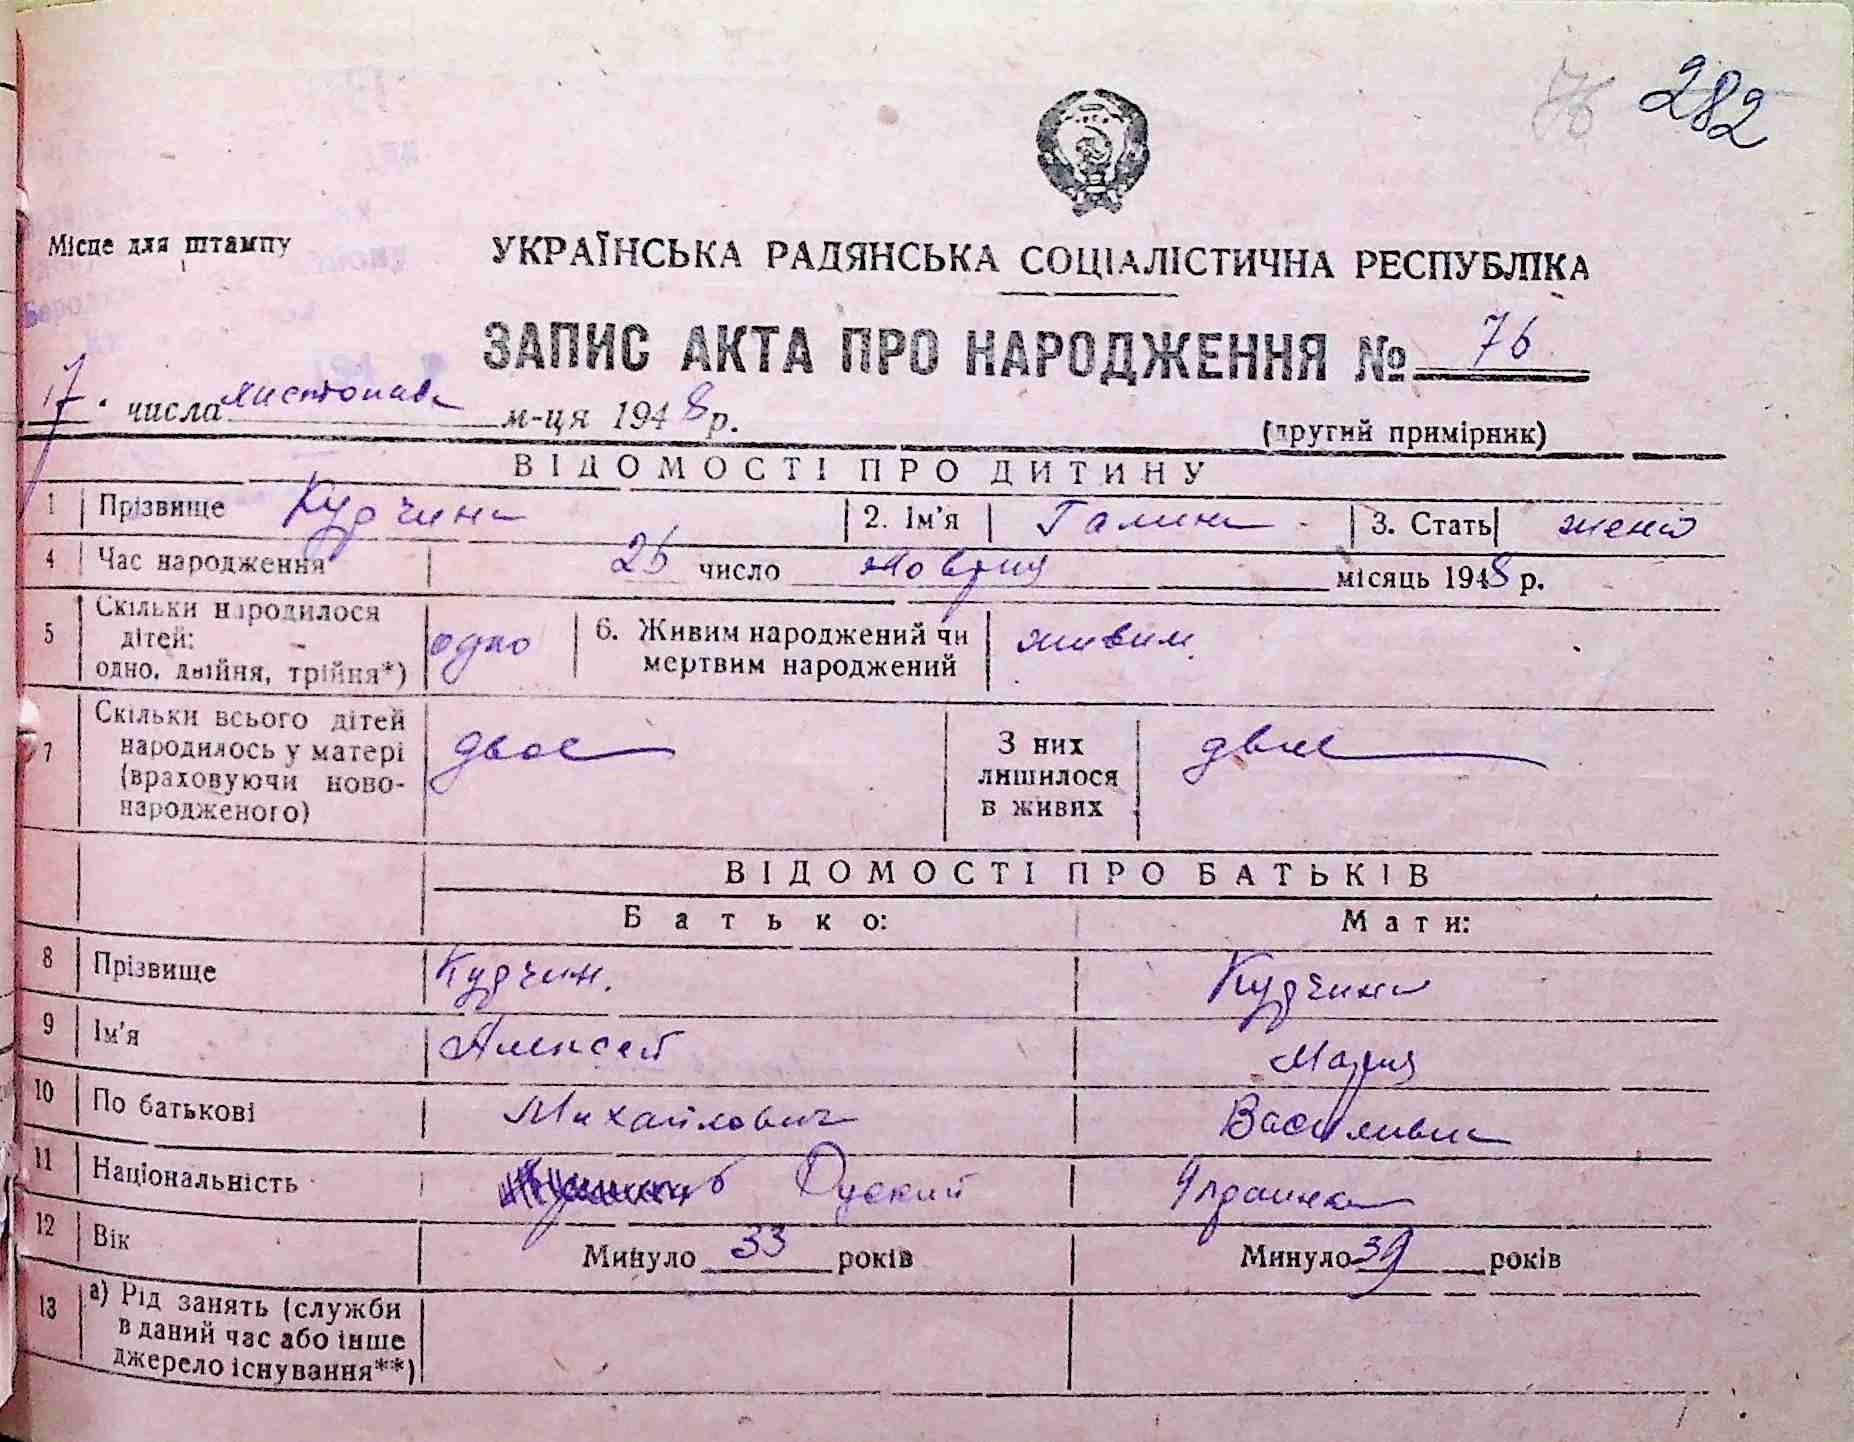 76 282
Місце для штампу
УКРАЇНСЬКА РАДЯНСЬКА СОЦІАЛІСТИЧНА РЕСПУБЛІКА
ЗАПИС АКТА ПРО НАРОДЖЕННЯ № 76
17 числа листопада м-ця 1948 р.
(другий примірник)
ВІДОМОСТІ ПРО ДИТИНУ
1 Прізвище Кудчина 2. Ім'я Галина 3. Стать жено
4 Час народження 25 число жовтня місяць 1948 р.
5 Скільки народилося
дітей:
одно, двійня, трійня*) одно
6. Живим народжений чи
мертвим народжений живим
7 Скільки всього дітей
народилось у матері
(враховуючи ново-
народженого) двое
З них
лишилося
в живих двое
ВІДОМОСТІ ПРО БАТЬКІВ
Батько: Мати:
8 Прізвище Кудчин. Кудчина
9 Ім'я Алексей Мария
10 По батькові Михайлович Василивна
11 Національність Руский Украинка
12 Вік Минуло 33 років Минуло 39 років
13 а) Рід занять (служби
в даний час або інше
джерело існування**)